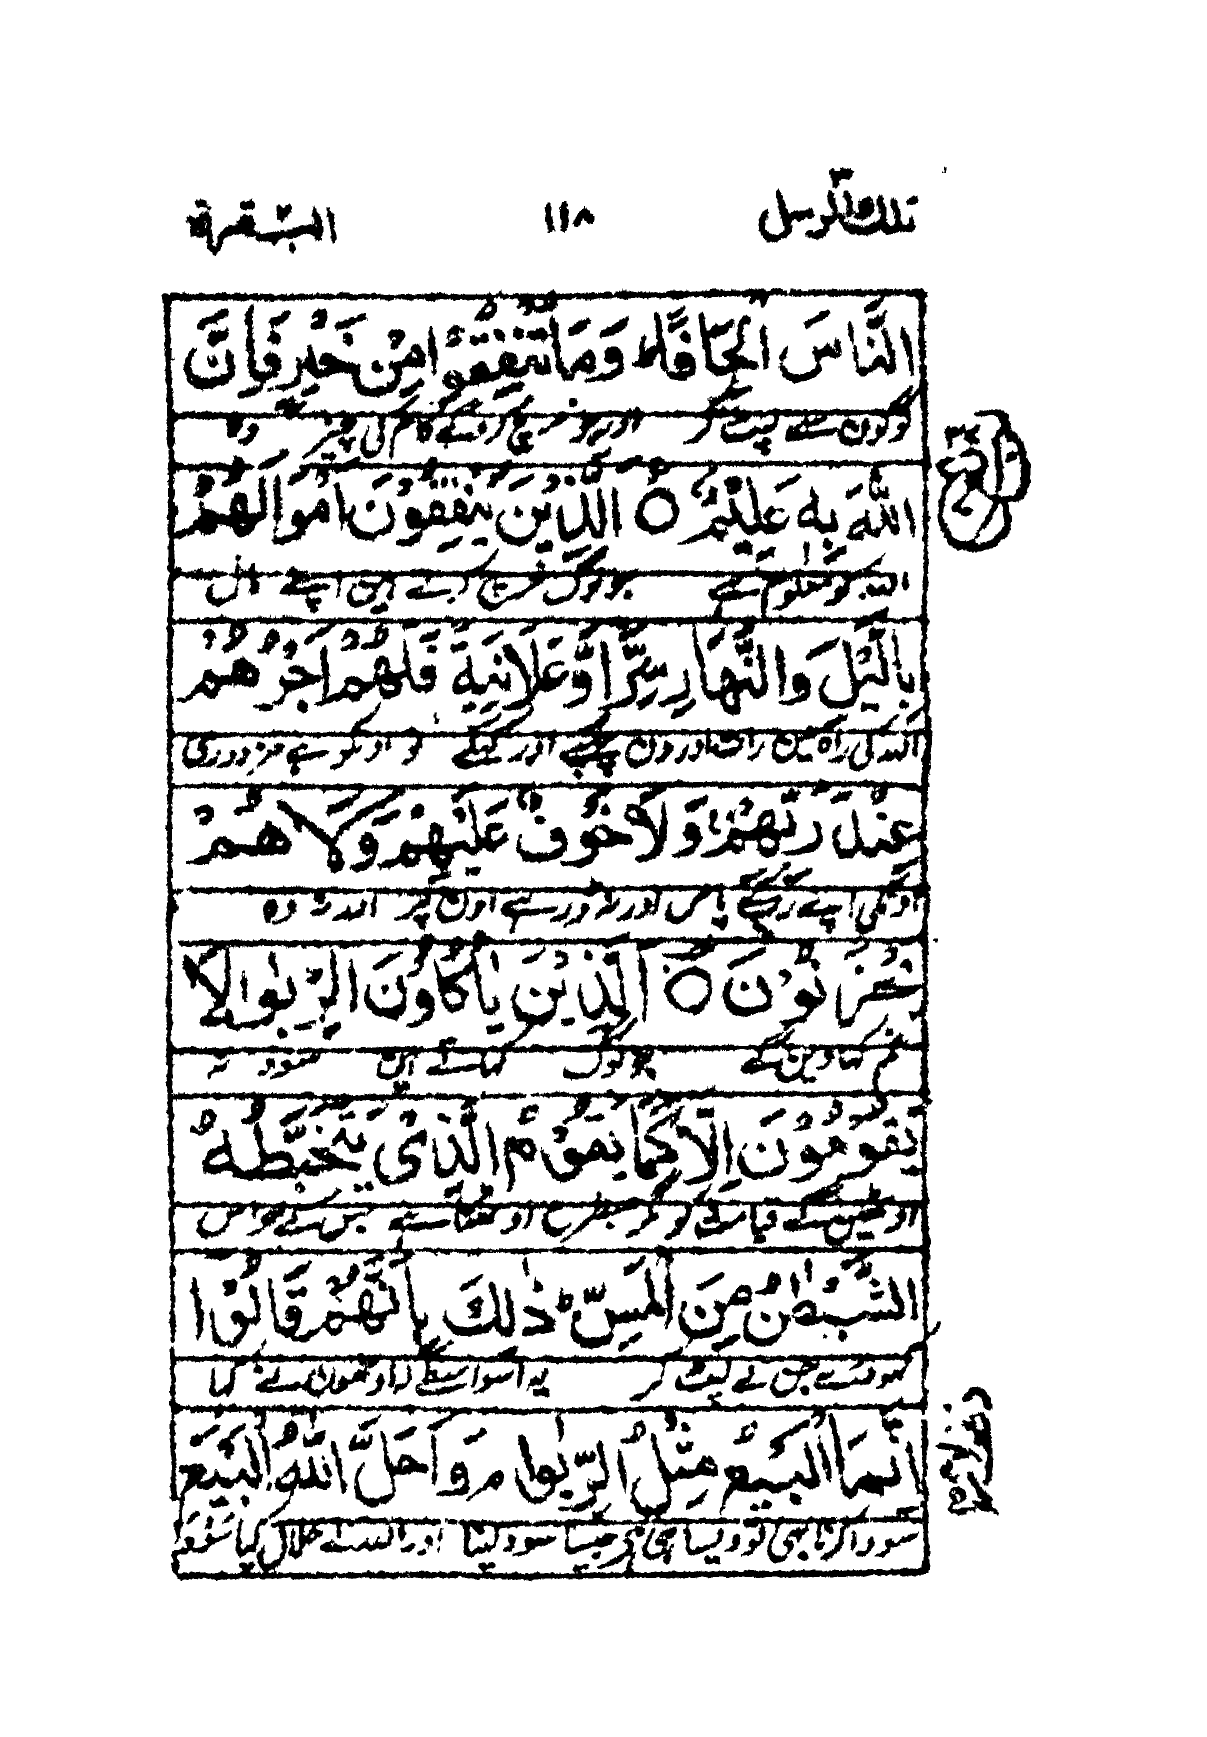 تلك الرسل ٣
١١٨
البقرة ٢
النَّاسَ اِلْحَافًا ؕ وَمَا تُنْفِقُوْا مِنْ خَيْرٍ فَاِنَّ
لوگون سے لپٹ کر اور جو خرچ کروگے کام کی چیز وہ
اللّٰهَ بِهٖ عَلِيْمٌ ○ اَلَّذِيْنَ يُنْفِقُوْنَ اَمْوَالَهُمْ
اللہ کو معلوم ہے جو لوگ خرچ کرتے ہین اپنے مال
بِالَّيْلِ وَالنَّهَارِ سِرًّا وَّعَلَانِيَةً فَلَهُمْ اَجْرُهُمْ
اللہ کی راہ مین رات اور دن چھپے اور کھلے تو اونکو ہے مزدوری
عِنْدَ رَبِّهِمْ ۚ وَلَا خَوْفٌ عَلَيْهِمْ وَلَا هُمْ
اونکی اپنے رب کے پاس اور نہ ڈر ہے اون پر اور نہ وہ
يَحْزَنُوْنَ ○ اَلَّذِيْنَ يَأْكُلُوْنَ الرِّبٰوا لَا
غم کھاوین گے جو لوگ کھاتے ہین سود نہ
يَقُوْمُوْنَ اِلَّا كَمَا يَقُوْمُ الَّذِيْ يَتَخَبَّطُهُ
اوٹھین گے قیامت کو مگر جسطرح اوٹھتا ہے جس کے حواس
الشَّيْطٰنُ مِنَ الْمَسِّ ؕ ذٰلِكَ بِاَنَّهُمْ قَالُوْا
کھو دئے جن نے لپٹ کر یہ اسواسطے کہ اونھون نے کہا
اِنَّمَا الْبَيْعُ مِثْلُ الرِّبٰوا ۘ وَاَحَلَّ اللّٰهُ الْبَيْعَ
سودا کرنا بھی تو ویسا ہی ہے جیسا سود لینا اور اللہ نے حلال کیا سودا